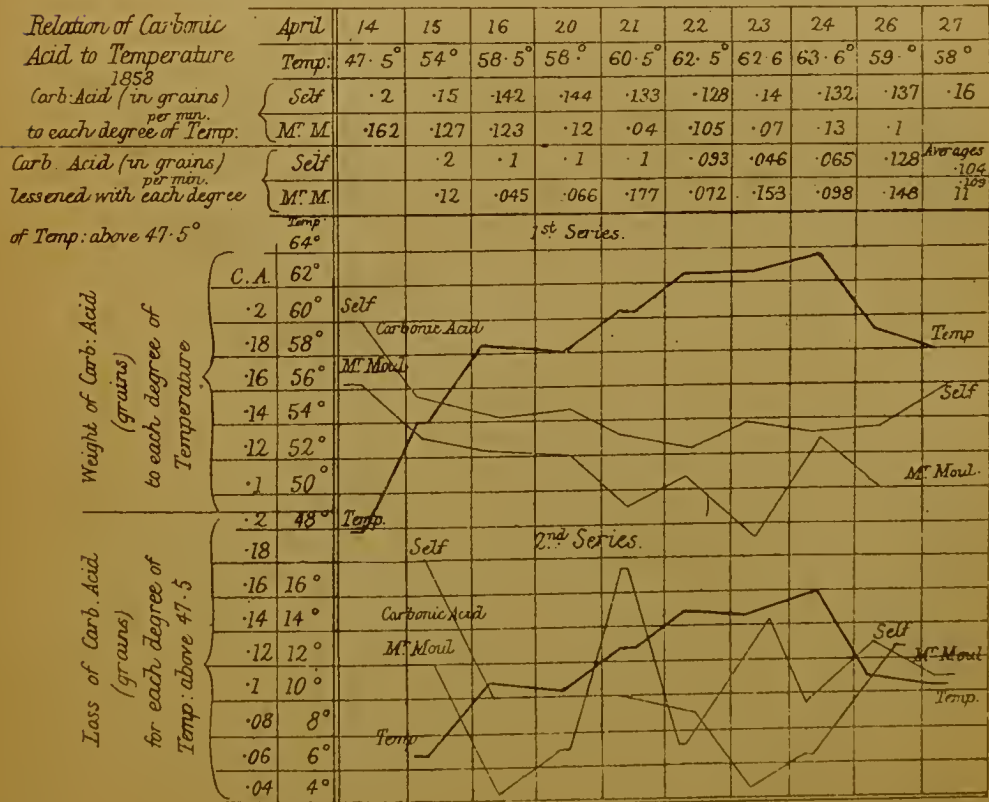 Relation of Carbonic Acid to Temperature 1858
April 14 15 16 20 21 22 23 24 26 27
Temp: 47·5° 54° 58·5° 58·° 60·5° 62·5° 62·6 63·6° 59·° 58°
Carb: Acid (in grains) per min. to each degree of Temp:
Self ·2 ·15 ·142 ·144 ·133 ·128 ·14 ·132 ·137 ·16
Mr. M. ·162 ·127 ·123 ·12 ·04 ·105 ·07 ·13 ·1
Carb. Acid (in grains) per min. lessened with each degree of Temp: above 47·5°
Self ·2 ·1 ·1 ·1 ·093 ·046 ·065 ·128 Averages ·104
Mr. M. ·12 ·045 ·066 ·177 ·072 ·153 ·098 ·148 ·109 11
1st Series.
Weight of Carb: Acid (grains) to each degree of Temperature
Temp:
64°
C.A. 62°
·2 60°
·18 58°
·16 56°
·14 54°
·12 52°
·1 50°
·2 48°
Self
Carbonic Acid
Mr. Moul
Temp
Self
Mr. Moul.
Temp.
2nd Series.
Loss of Carb. Acid (grains) for each degree of Temp: above 47·5
·18
·16 16°
·14 14°
·12 12°
·1 10°
·08 8°
·06 6°
·04 4°
Self
Carbonic Acid
Mr. Moul
Temp
Self
Mr. Moul
Temp.